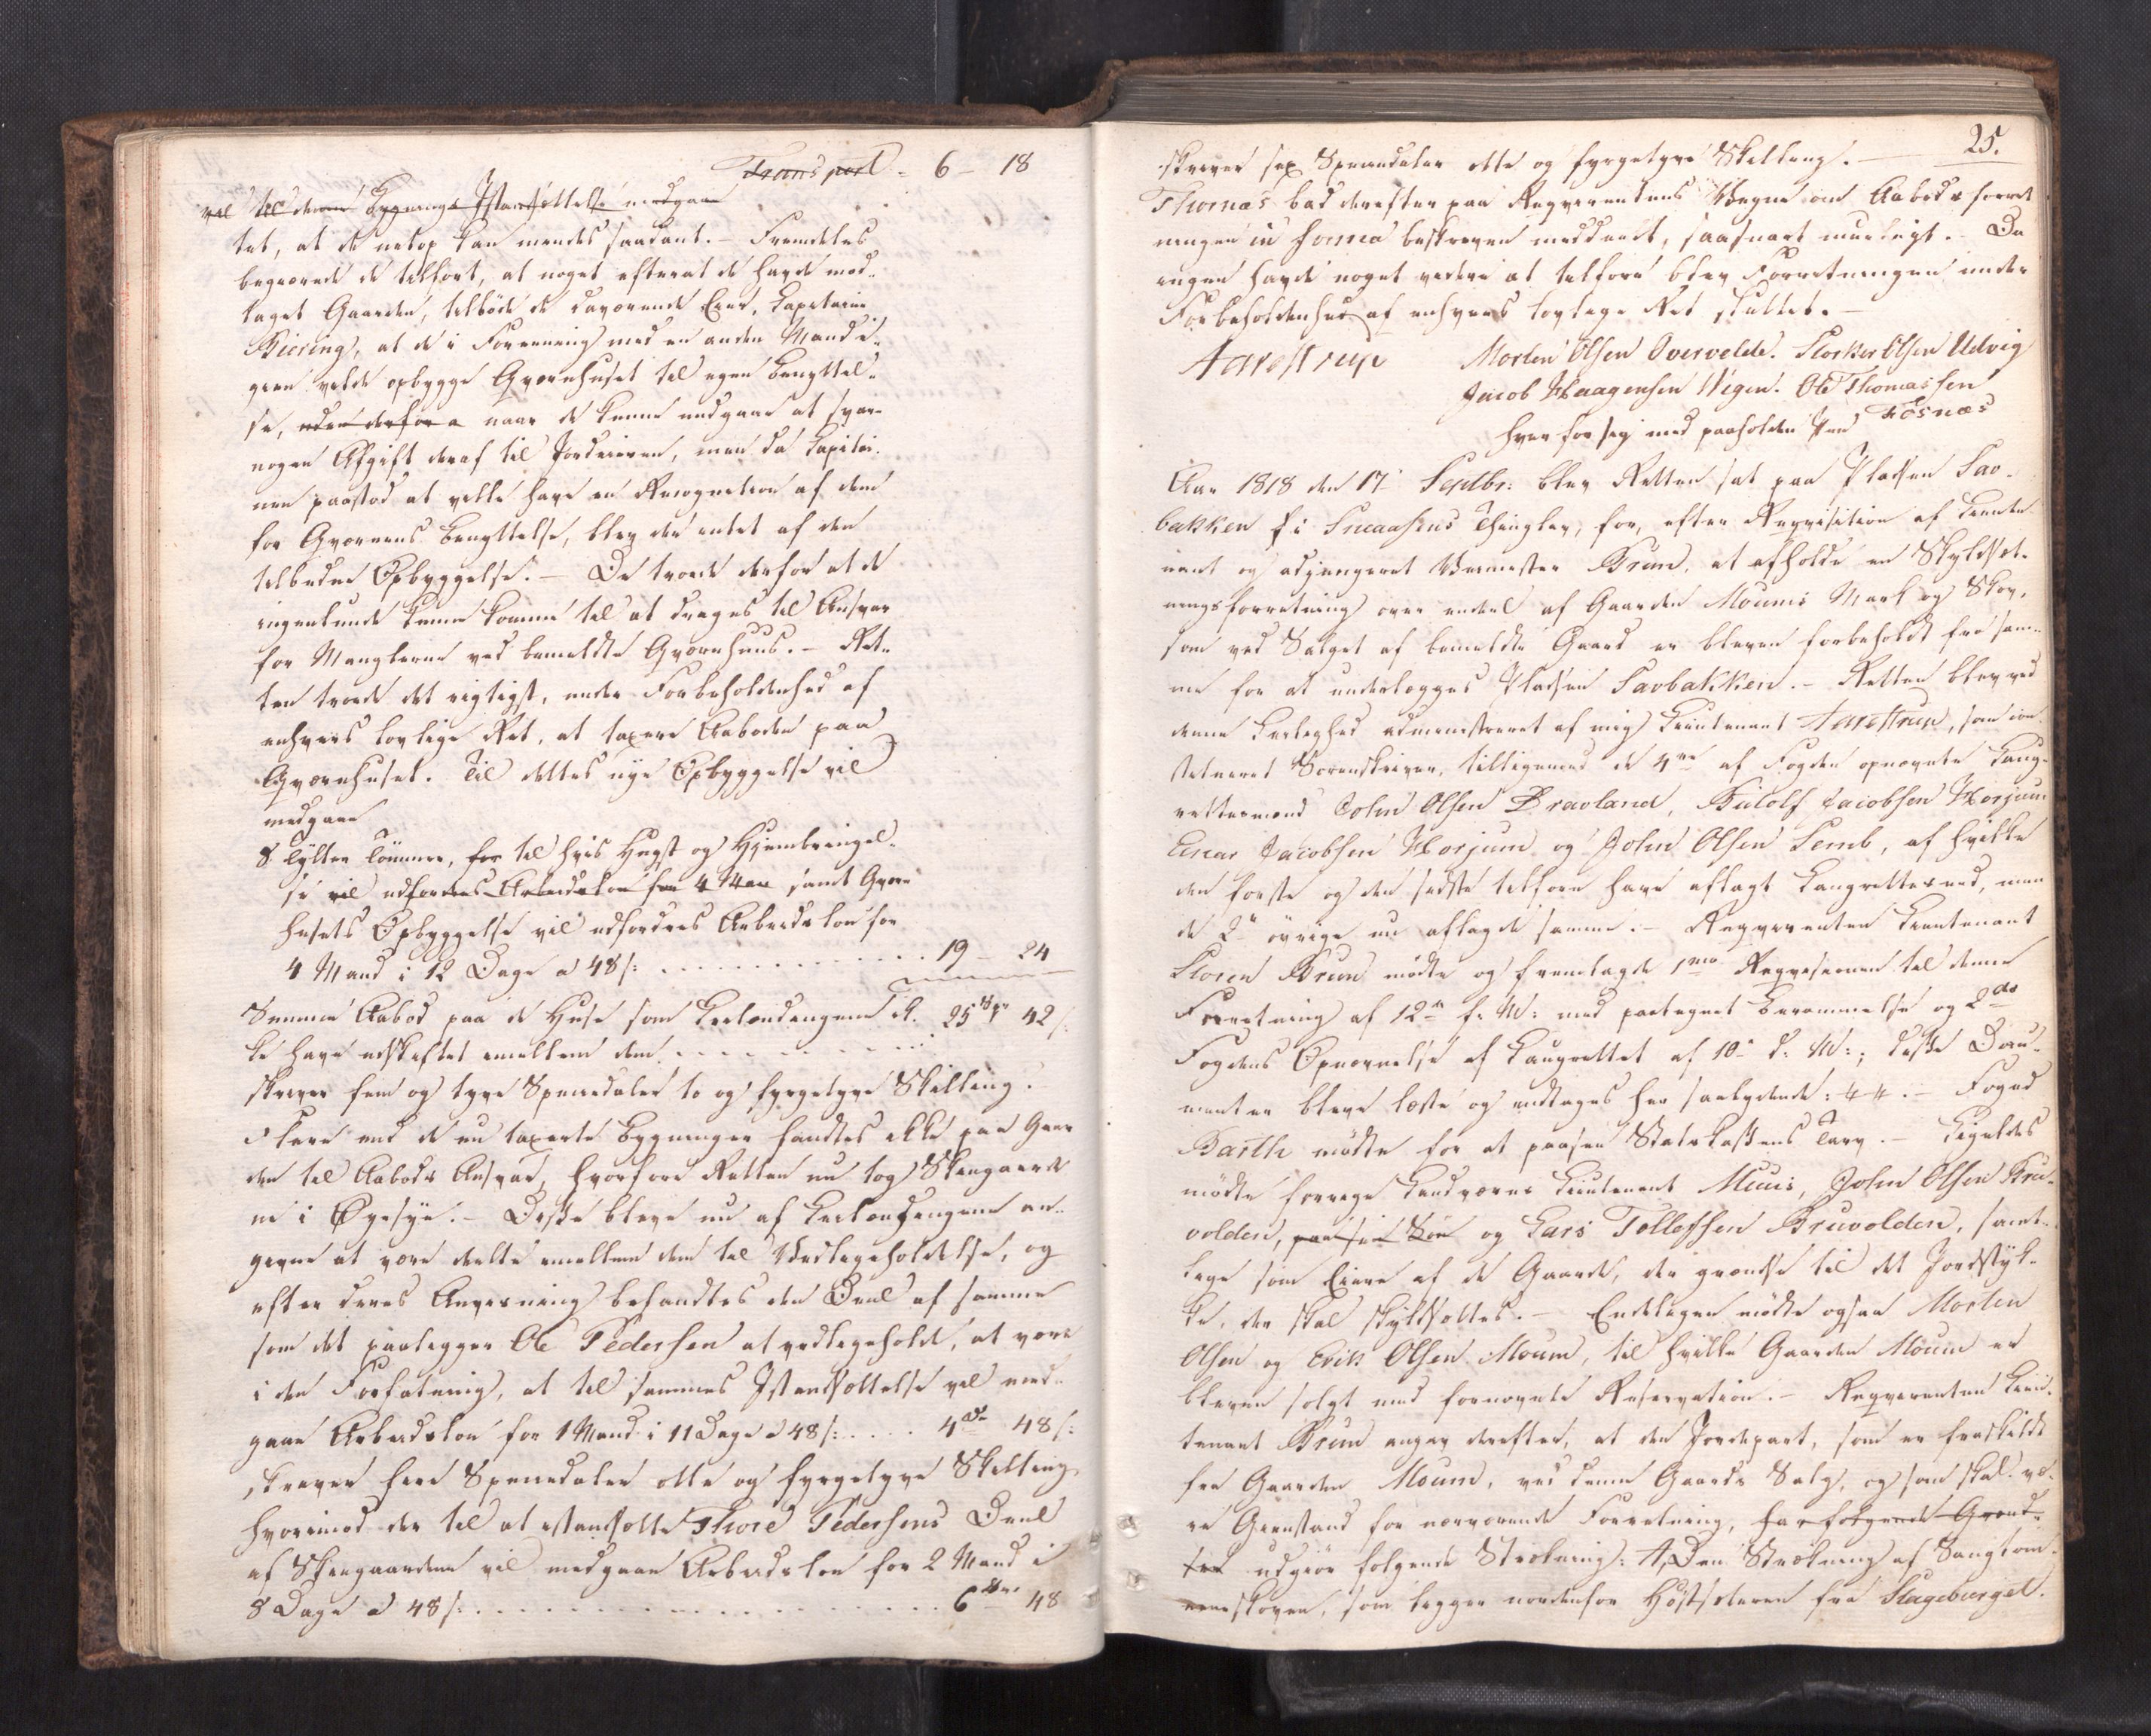 Transport - 6 - 18
vil til denne Bygnings Istandsættelse medgaae
tet, at de netop kan meldes saadant. - Fremdeles
begjærede de tilført, at noget efterat de havde mod-
taget Gaarden, tilböd de daværende Eier, Capitaine
Biering, at de i Foreening med en anden Mand i
geen vilde opbygge Qværnhuset til egen Benyttel-
se, uden derfor a naar de kunne undgaae at svare
nogen Afgift deraf til Jordeieren, men da Capitai-
nen paastod at ville have en Recognition af dem
for Qværnens Benyttelse, blev der intet af den
tilbudne Opbyggelse. - De troede derfor at de
ingenlunde kunne komme til at drages til Ansvar
for Manglerne ved bemeldte Qværnhuus. - Ret-
ten troede det rigtigst, under Forbeholdenhed af
enhvers lovlige Ret, at taxere Aaboden paa
Qværnhuset. Til dettes nye Opbyggelse vil
medgaae
8 Tylter Tömmer, for til hvis Hugst og Hjembringel-
se vil udfordres Arbeidslön for 4 Man samt Qværn
husets Opbyggelse vil udfordres Arbeidslön for
4 Mand i 12 Dage a 48 s: . . . . . . . . 19 - 24
Summa Aabod paa de Huse som Leilændingene ik- 25 Spd 42 s:
ke have udskiftet imellem dem . . . . . .
skriver fem og tyve Speciedaler to og fyrgetyve Skilling.
Flere end de nu taxerte Bygninger fandtes ikke paa Gaar
den til Aabods Ansvar, hvorfore Retten nu tog Skigaarde
ne i Öyesyn. - Disse bleve nu af Leilændingene an-
givne at være deelte imellem dem til Vedligeholdelse, og
efter deres Anviisning befandtes den Deel af samme
som det paaligger Ole Pedersen at vedligeholde, at være
i den Forfatning, at til sammes Istandsættelse vil med-
gaae Arbeidslön for 1 Mand i 11 Dage a 48 s: . . . . 4 Sp 48 s:
skriver fire Speciedaler otte og fyrgetyve Skilling
hvorimod der til at istandsætte Thore Pedersens Deel
af Skigaardene vil medgaae Arbeidslön for 2 Mand i
8 Dage a 48 s: . . . . . . . . . . . . 6 Spd 48
25.
skriver sex Speciedaler otte og fyrgetyve Skilling. -
Thomas bad derefter paa Reqvirentens Vegne om Aabods forret
ningen in forma beskreven meddeelt, saasnart mueligt. - Da
ingen havde noget videre at tilföre blev Forretningen under
Forbeholdenhed af enhvers lovlige Ret sluttet. -
Aarestrup Morten Olsen Overvelde. Storker Olsen Udvig
Jacob Haagensen Vigen. Ole Thomassen
Fosnæs
hver for sig med paaholden Pen
Aar 1818 den 17 Septbr: blev Retten sat paa Pladsen Sav-
bakken f i Sneaasens Thinglav, for, efter Reqvisition af Lieute-
nant og adjungeret Veimester Brun, at afholde en Skyldsæt-
ningsforretning over endeel af Gaarden Moums Mark og Skov,
som ved Salget af bemeldte Gaard er bleven forbeholdt fra sam-
me for at underlægges Pladsen Savbakken. - Retten blev ved
denne Leilighed administreret af mig Lieutenant Aarestrup, som con-
stitueret Sorenskriver, tilligemed de 4re af Fogden opnævnte Laug-
rettesmænd John Olsen Bravland, Budolf Jacobsen Horjum
Einar Jacobsen Horjum og John Olsen Semb, af hvilke
den förste og den sidste tilforn have aflagt Laugrettes eed, men
de 2 övrige nu aflagde samme. - Reqvirenten Lieutenant
Storen Brun mödte og fremlagde 1mo Reqvisitionen til denne
Forretning af 12 f: M: med paategnet Berammelse og 2do
Fogdens Opnævnelse af Laugrettet af 10 d: M:; disse Docu-
menter bleve læste og indtages her saalydende: ++. - Foged
Barth mödte for at paasee Statskassens Tarv. - Ligeledes
mödte forrige Landværns Lieutenant Muus, John Olsen Bru-
volden, paa sin Sön og Lars Tollefsen Bruvolden, samt-
lige som Eiere af de Gaarde, der grændse til det Jordstyk-
ke, der skal skyldsættes. - Endeligen mödte ogsaa Morten
Olsen og Erik Olsen Moum, til hvilke Gaarden Moum er
bleven solgt med fornævnte Reservation. - Reqvirenten Lieu-
tenant Brun angav derefter, at den Jordepart, som er fraskildt
fra Gaarden Moum, ved denne Gaards Salg, og som skal væ-
re Gienstand for nærværende Forretning, har følgende Grænd-
ser udgiör fölgende Strækning: A, Den Strækning af
skoven, som ligger nordenfor fra Stageberget.